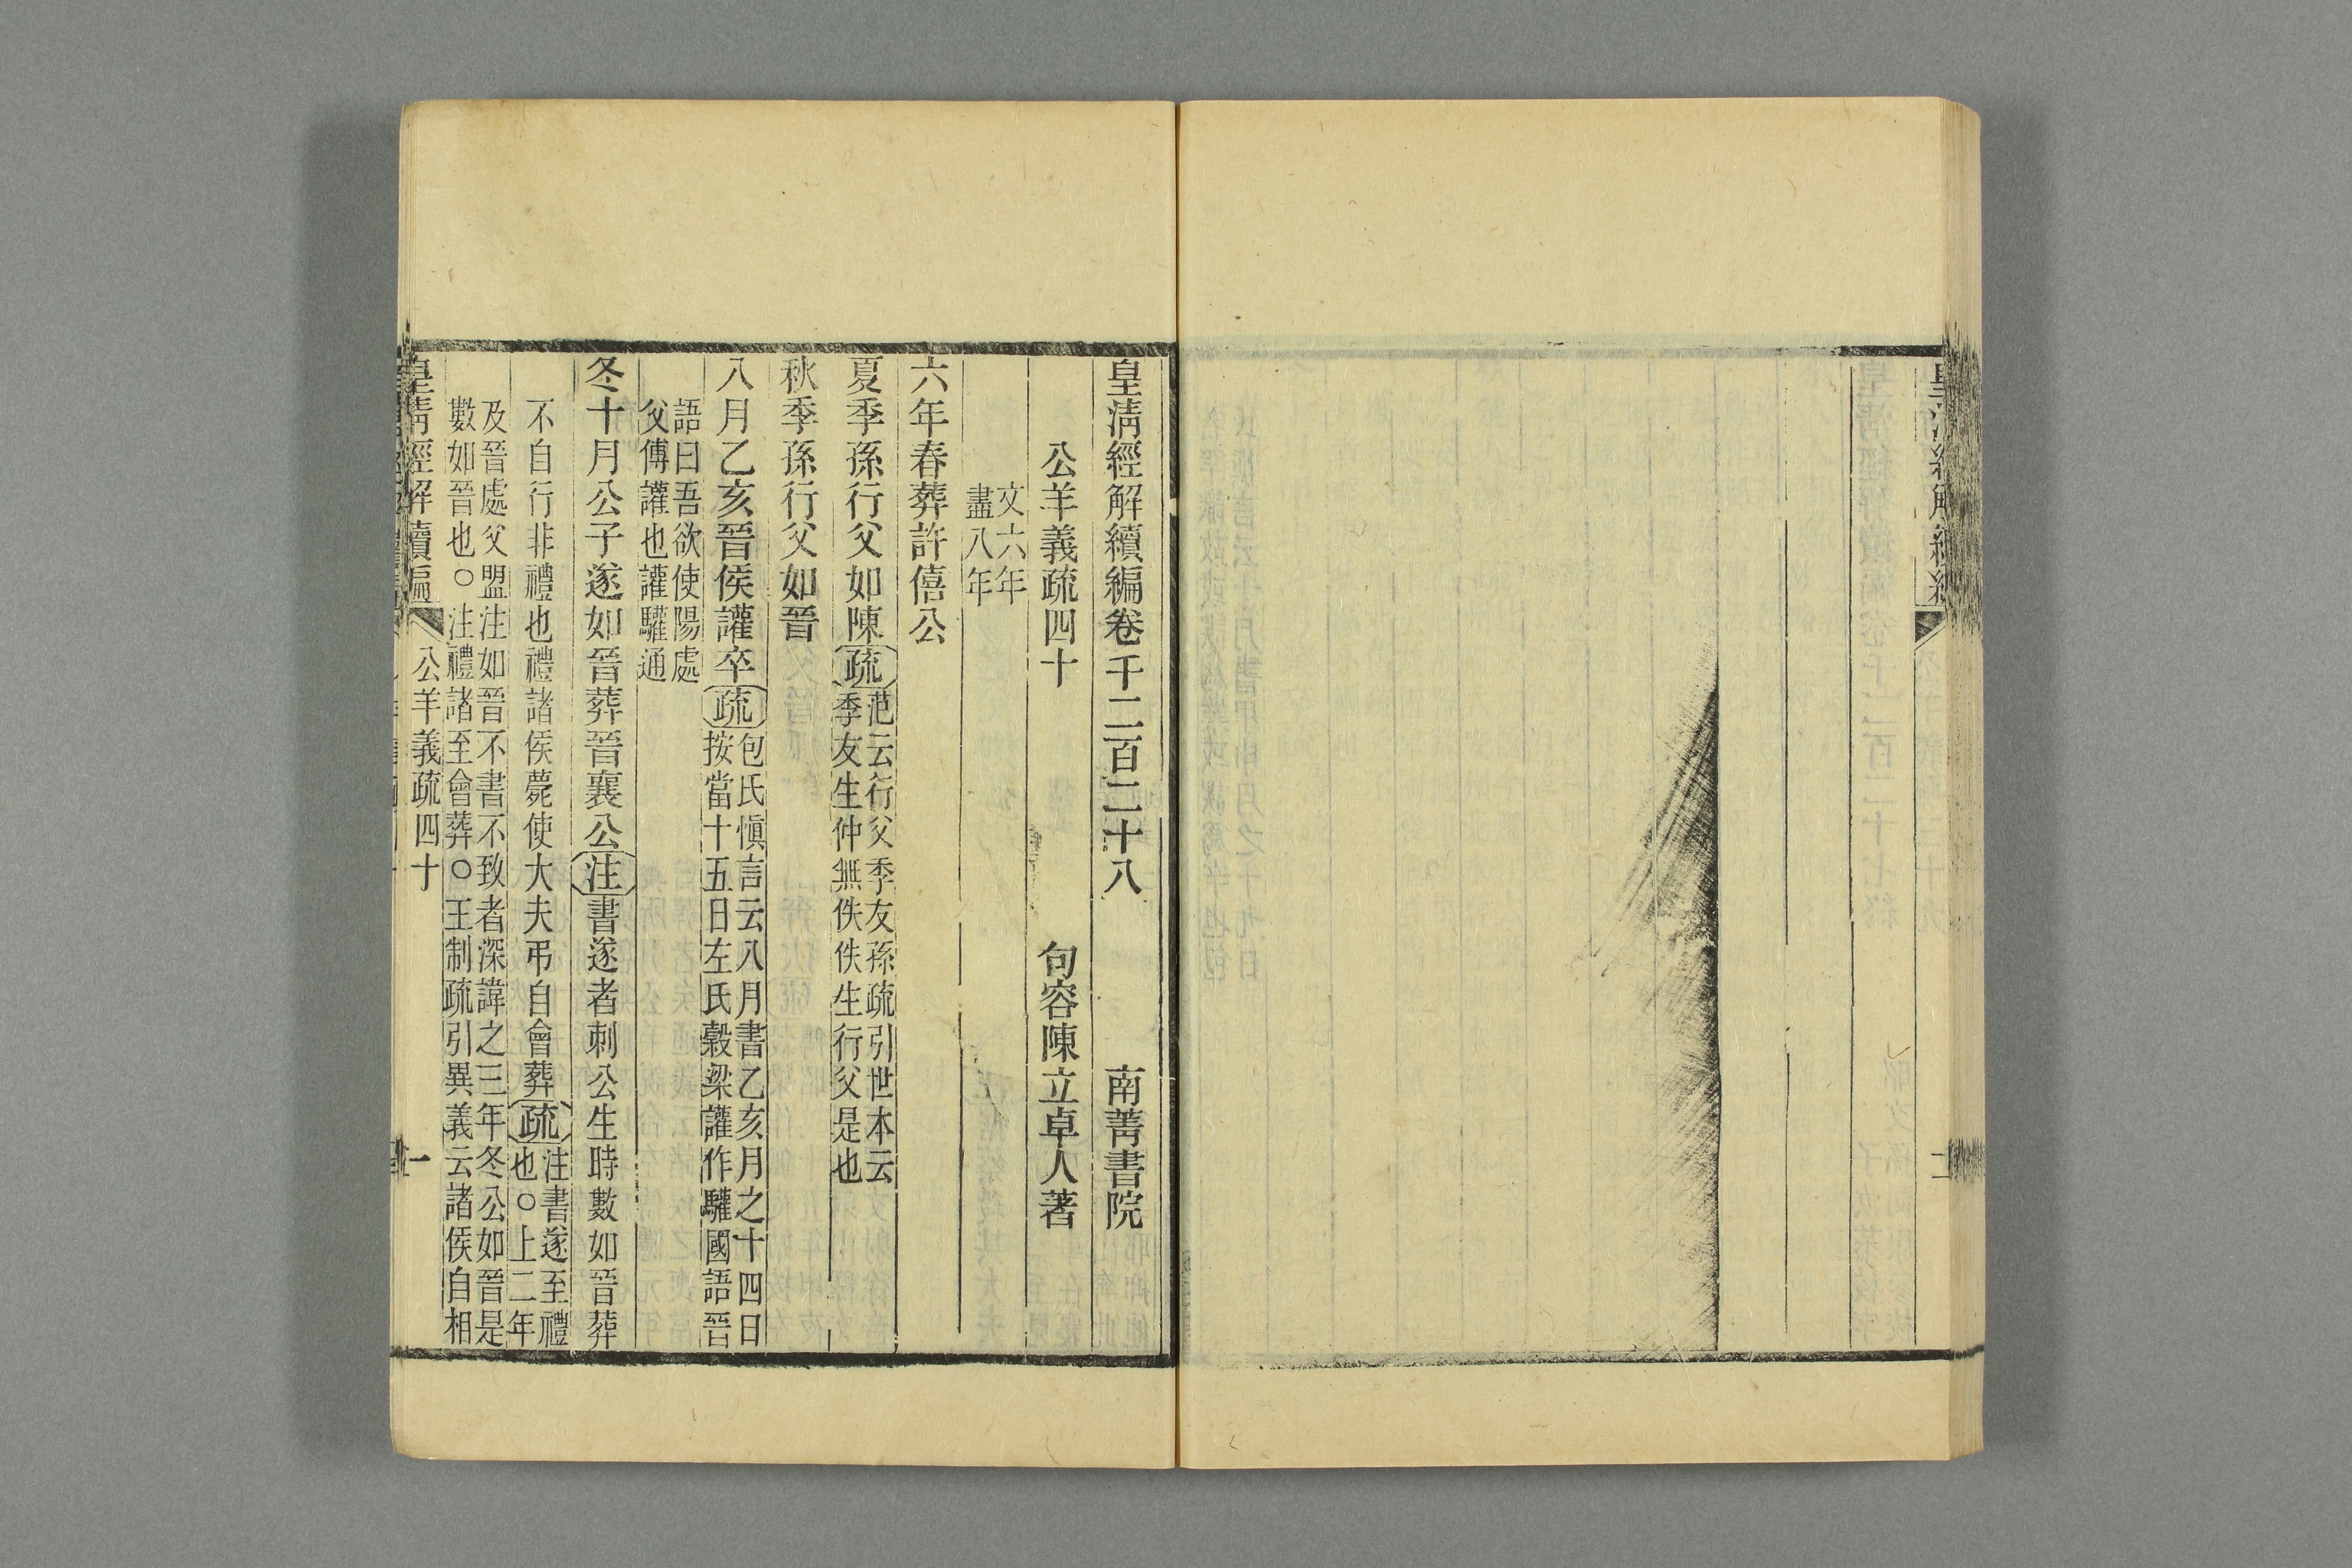 皇清經解續編卷千二百二十八
南菁書院
公羊義疏四十
句容陳立卓人著
文六年
盡八年
六年春葬許僖公
夏季孫行父如陳疏范云行父季友孫疏引世本云
季友生仲無佚佚生行父是也
秋季孫行父如晉
八月乙亥晉侯讙卒疏包氏愼言云八月書乙亥月之十四日
按當十五日左氏穀梁讙作驩國語晉
語曰吾欲使陽處
父傅讙也讙驩通
冬十月公子遂如晉葬晉襄公注書遂者刺公生時數如晉葬
不自行非禮也禮諸侯薨使大夫弔自會葬疏注書遂至禮
也○上二年
及晉處父盟注如晉不書不致者深諱之三年冬公如晉是
數如晉也○注禮諸至會葬○王制疏引異義云諸侯自相
皇清經解續編
公羊義疏四十
一